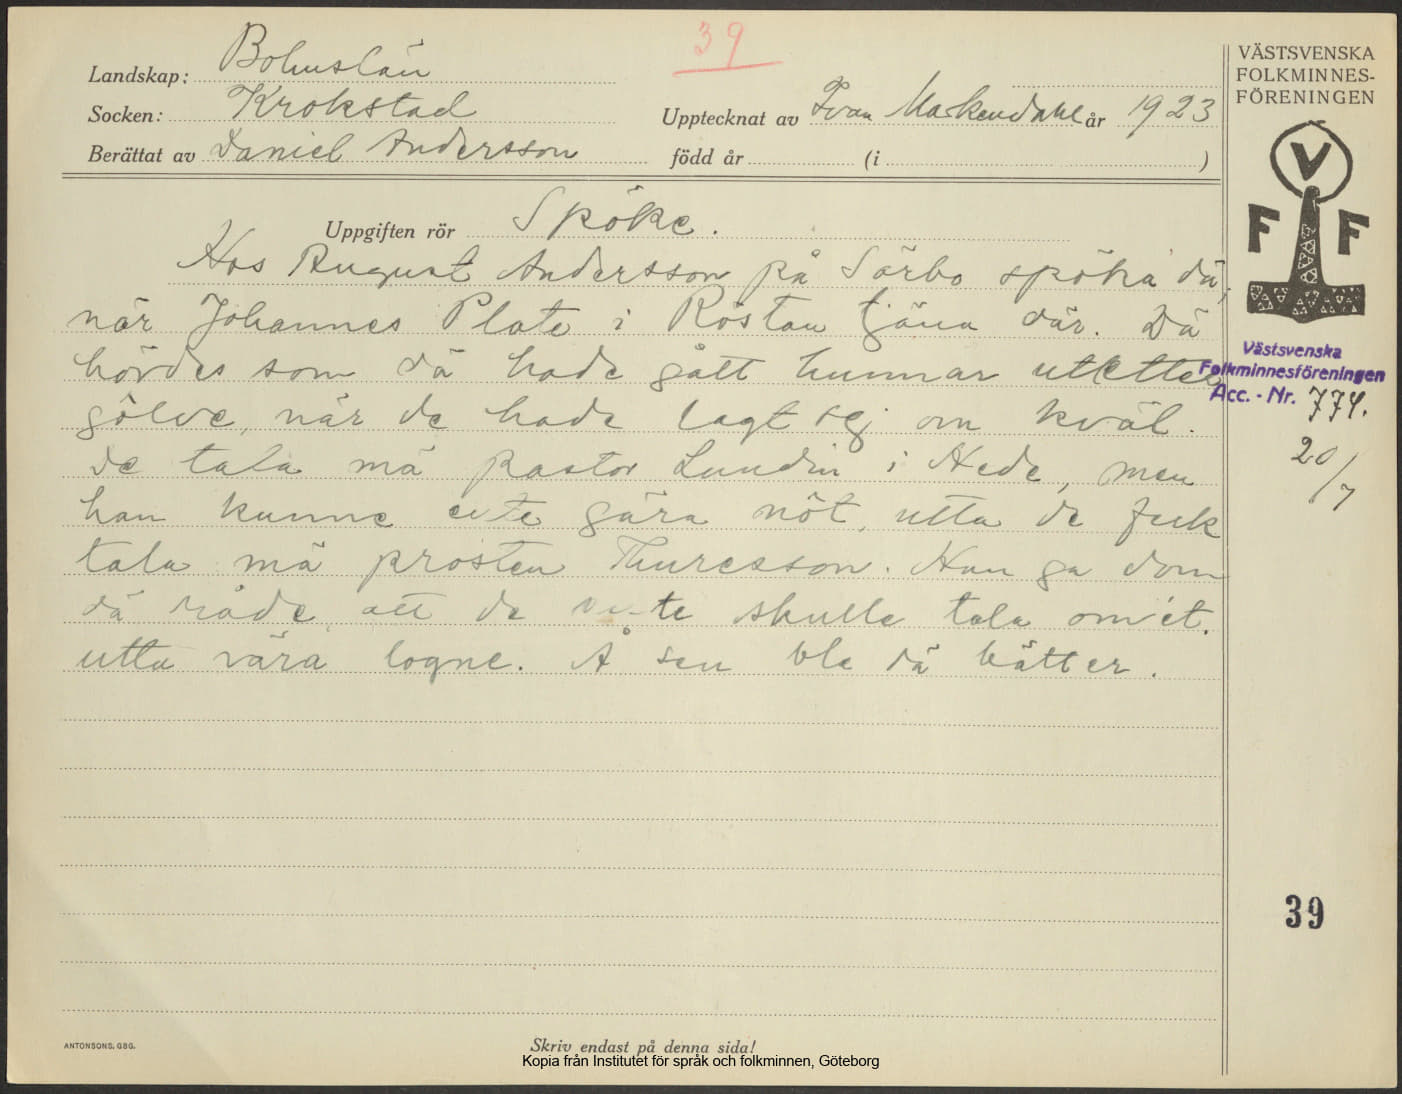 39
Landskap: Bohuslän
Socken: Krokstad
Upptecknat av Ivar Markendahl år 1923
Berättat av Daniel Andersson
född år (i )
Uppgiften rör Spöke.
Hos August Andersson på Sörbo spöka dä,
när Johannes Plate i Röstan tjäna där. Dä
hördes som dä hade gått hunnar utetter
gölve, när de hade lagt sej om kväl.
De tala mä pastor Lundin i Hede, men
han kunne ente gära nöt, utta de fek
tala mä prosten Thuresson. Han ga dom
dä råde, att de ente skulle tala om'et,
utta vära logne. Å sen ble dä bätter.
VÄSTSVENSKA
FOLKMINNES-
FÖRENINGEN
V
F F
Västsvenska
Folkminnesföreningen
Acc. - Nr. 774.
20/7
39
ANTONSONS, GBG.
Skriv endast på denna sida!
Kopia från Institutet för språk och folkminnen, Göteborg